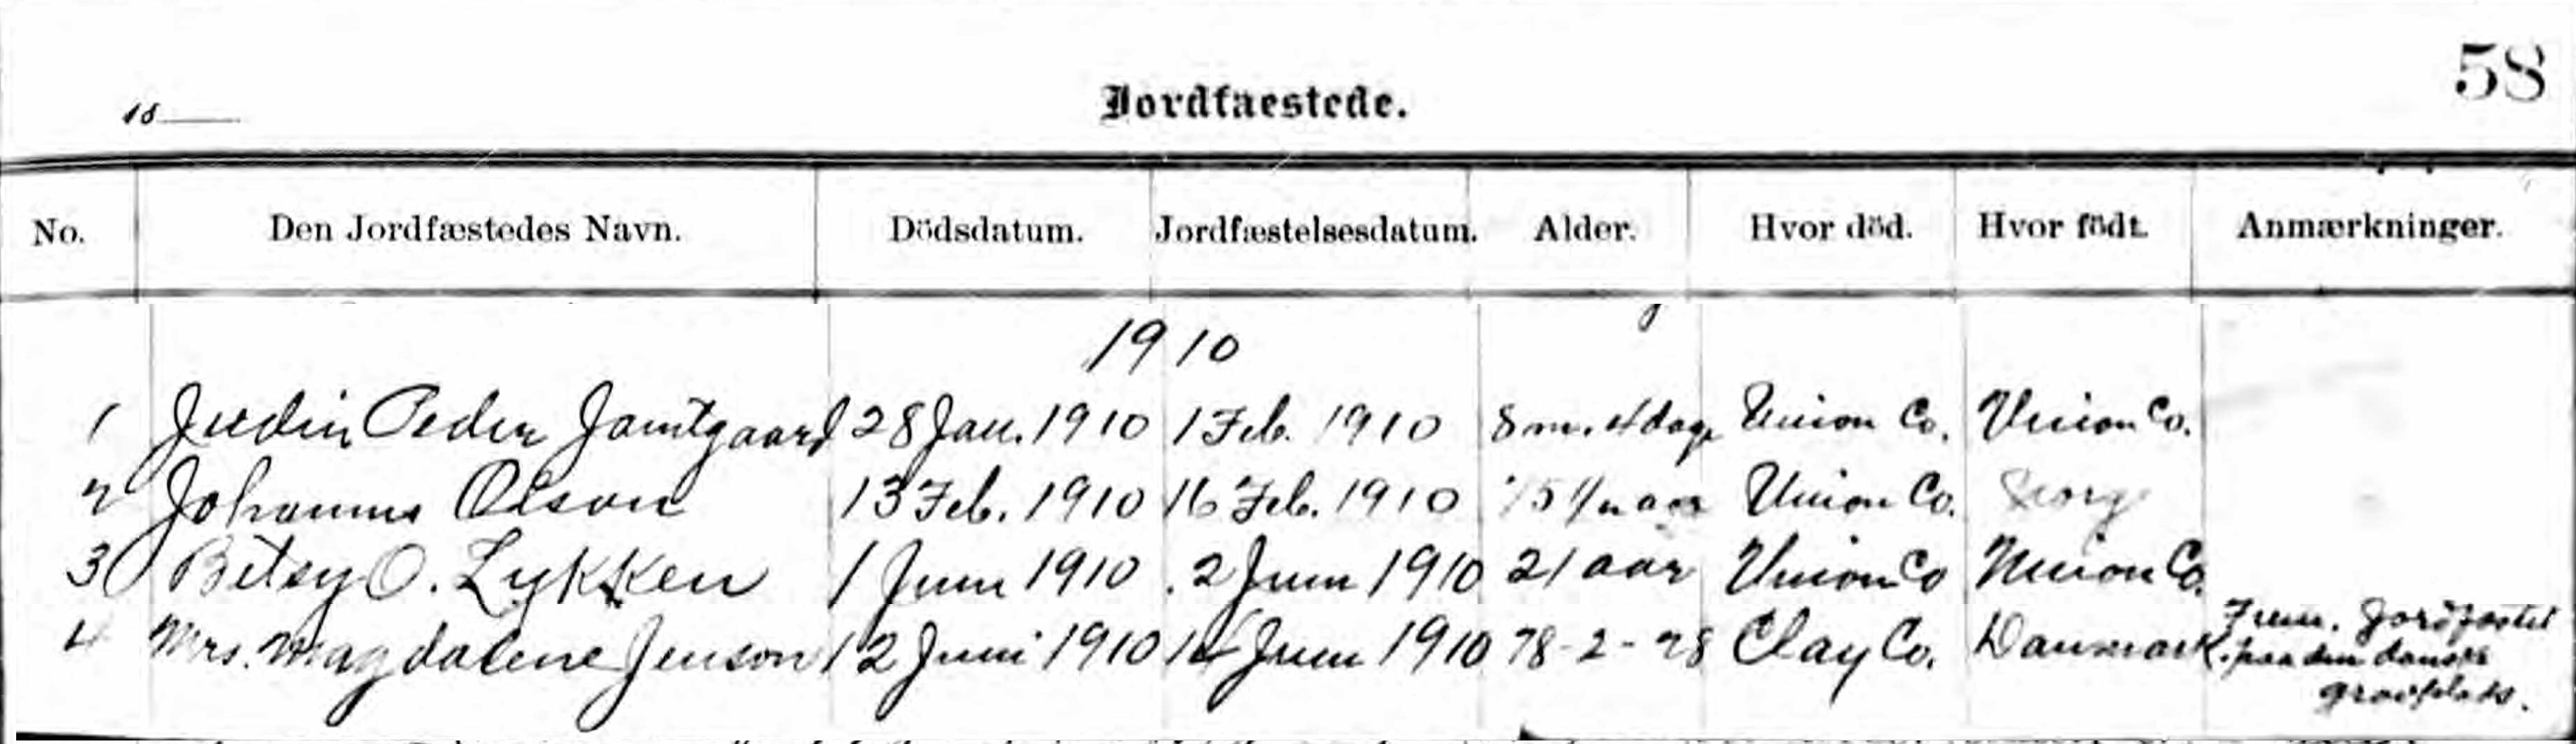 58
18
Jordfaestede.
No. Den Jordfæstedes Navn. Dödsdatum. Jordfæstelsesdatum. Alder. Hvor död. Hvor födt. Anmærkninger.
1910
1 Peder Jamtgaard 28 Jan. 1910 1 Feb. 1910 8 m. 4 dage Union Co. Union Co.
2 Johannes Olson 13 Feb. 1910 16 Feb. 1910 aar Union Co. Norge
3 Betsy O. Lykken 1 Juni 1910 2 Juni 1910 21 aar Union Co Union Co.
4 Mrs. Magdalene Jenson 12 Juni 1910 14 Juni 1910 78-2-28 Clay Co. Danmark. Jordfæstet
paa den danske
gravplads.